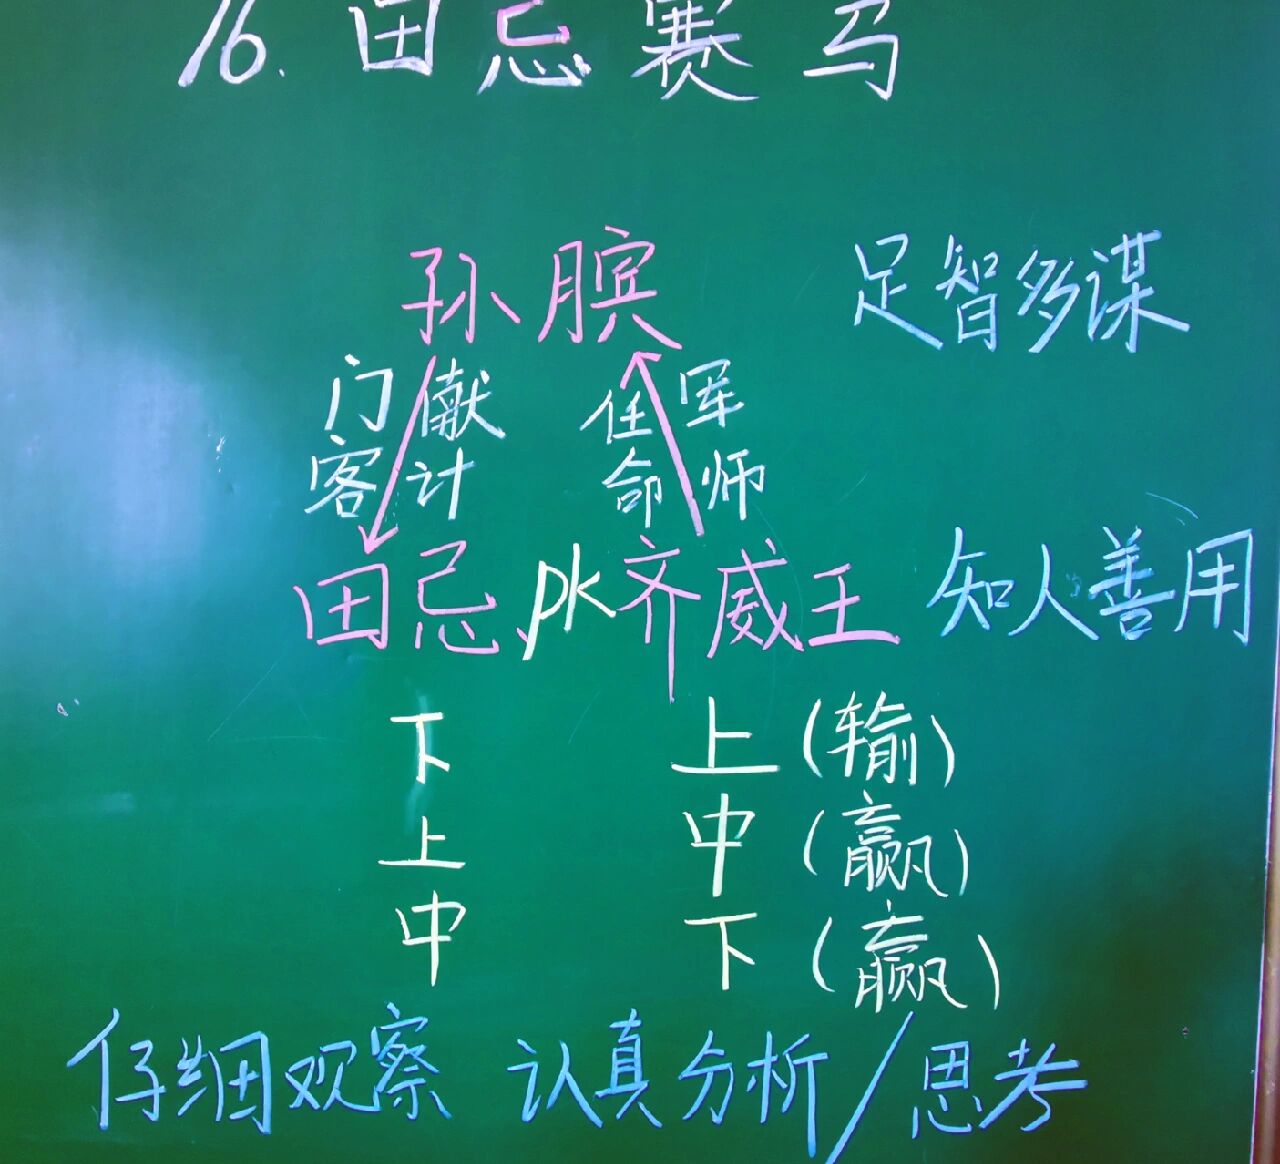 16. 田忌赛马
孙膑 足智多谋
门客 献计 任命 军师
田忌 pk 齐威王 知人善用
下 上 (输)
上 中 (赢)
中 下 (赢)
仔细观察 认真分析/思考